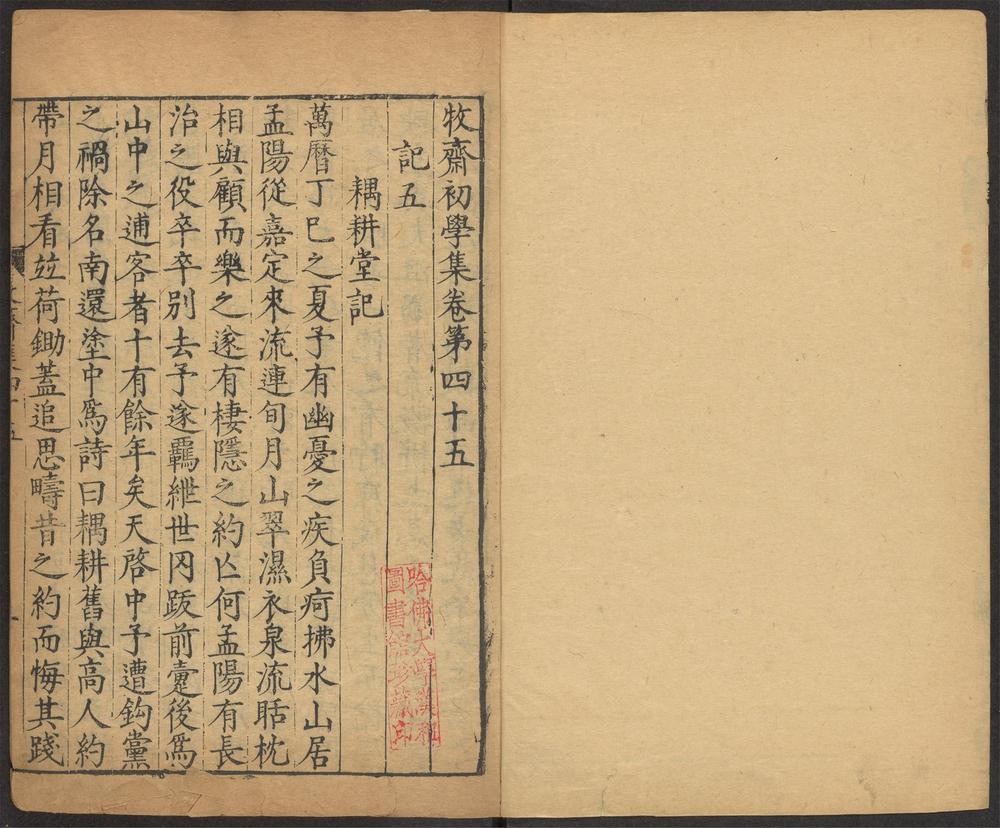 牧齋初學集卷第四十五
記五
耦耕堂記
萬曆丁巳之夏予有幽憂之疾負疴拂水山居
孟陽從嘉定來流連旬月山翠濕衣泉流聒枕
相與顧而樂之遂有棲隱之約亾何孟陽有長
治之役卒卒別去予遂羈紲世网跋前疐後爲
山中之逋客者十有餘年矣天啓中予遭鈎黨
之禍除名南還塗中爲詩曰耦耕舊與高人約
帶月相看並荷鋤蓋追思疇昔之約而悔其踐
哈佛大學漢和
圖書館珍藏印